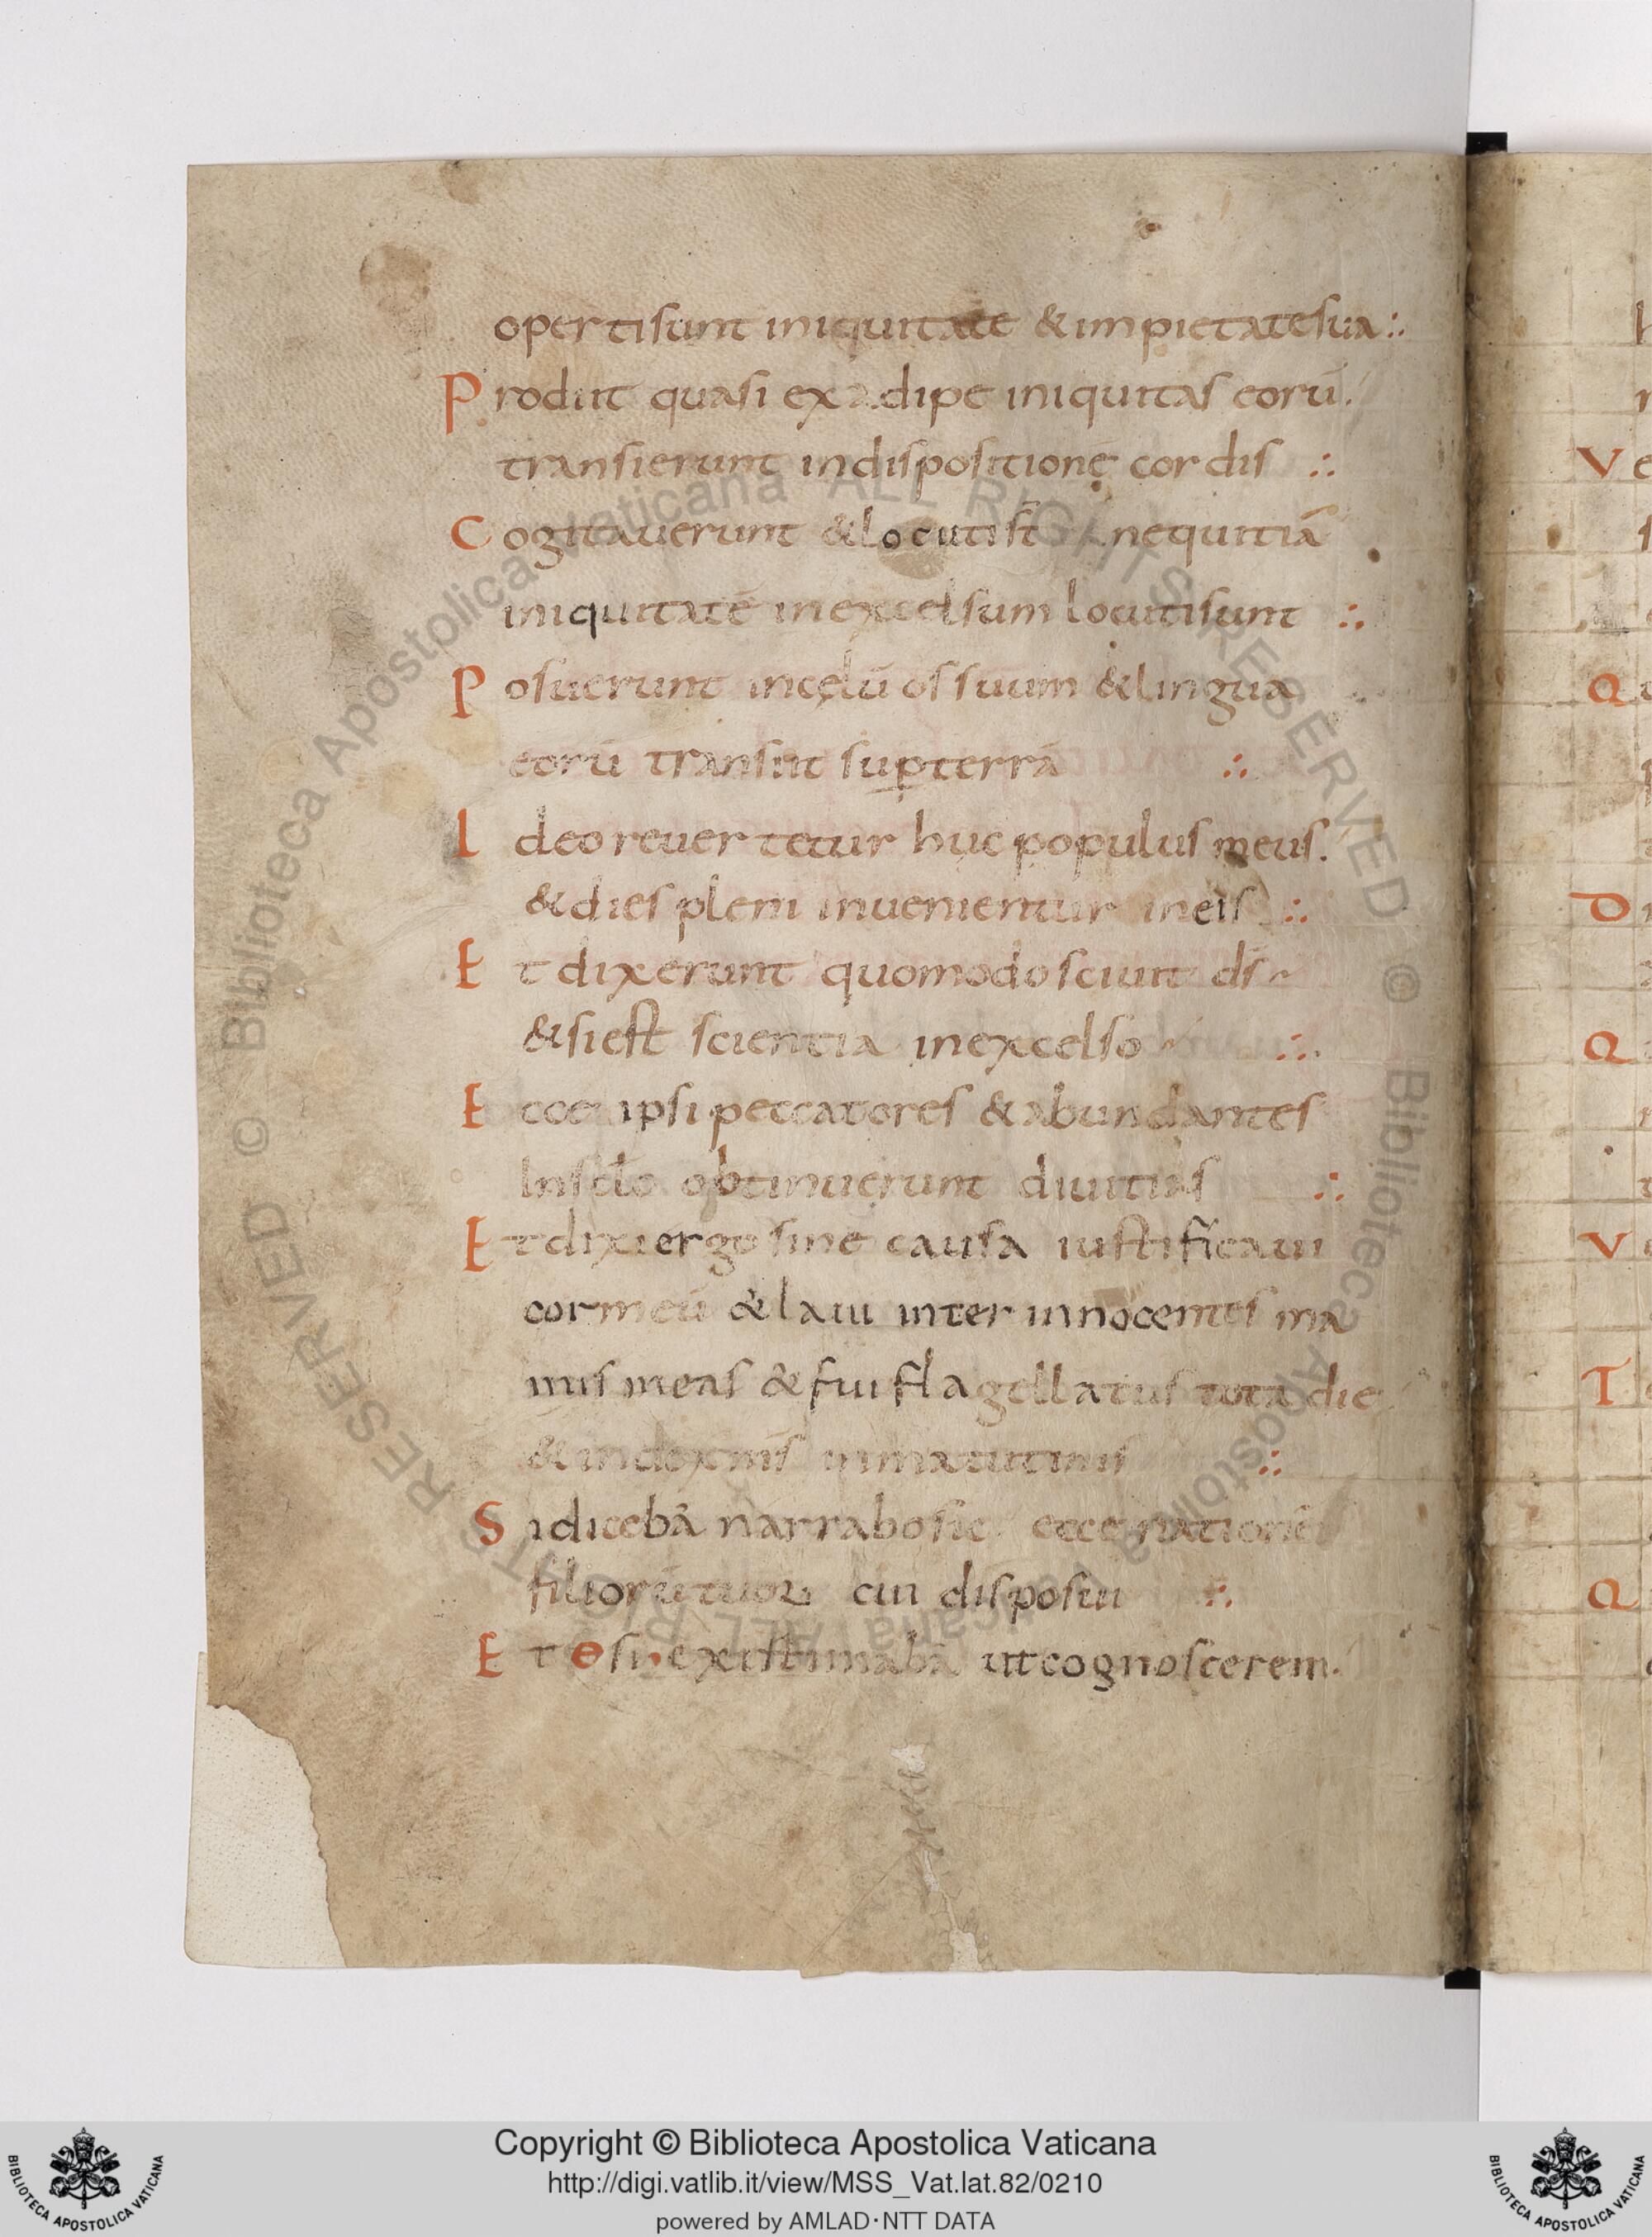 opertisunt iniquitate & impietatesua ∴
Prodiit quasi ex adipe iniquitas eorū.
transierunt indispositionē cordis ∴
Cogitauerunt & locutist nequitiā
iniquitatē inexcelsum locutisunt ∴
Posuerunt incęlū ossuum & lingua
eorū transiit suꝑterrā ∴
Ideo reuertetur huc populus meus.
& dies pleni inuenientur ineis ∴
Et dixerunt quomodo sciuit ds
& siest scientia inexcelso ∴
Ecce ipsi peccatores & abundantes
Insclo obtinuerunt diuitias ∴
Et dixi ergo sine causa iustificaui
cor meū & laui inter innocentes ma
nus meas & fui flagellatus tota die
& index mīs inmatutinis ∴
Si dicebā narrabo sic ecce nationē
filiorū tuoꝝ cui disposui ∴
Et e si existimabā ut cognoscerem.
V
Q
D
Q
V
T
Q
BIBLIOTECA APOSTOLICA VATICANA
Copyright © Biblioteca Apostolica Vaticana
http://digi.vatlib.it/view/MSS_Vat.lat.82/0210
powered by AMLAD·NTT DATA
BIBLIOTECA APOSTOLICA VATICANA
© Biblioteca Apostolica Vaticana ALL RIGHTS RESERVED © Biblioteca Apostolica Vaticana ALL RIGHTS RESERVED